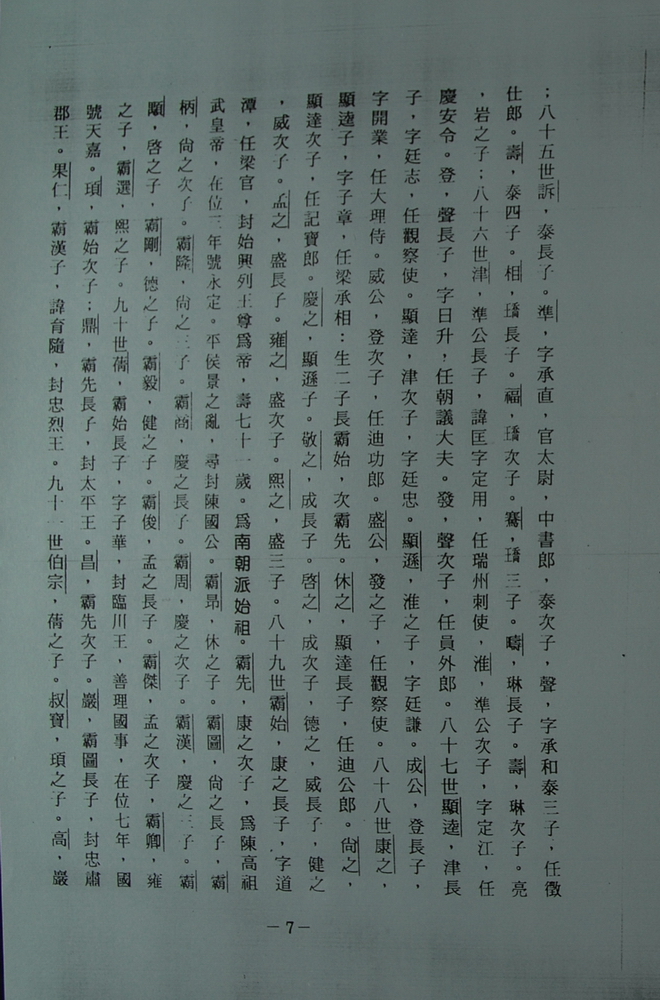 ；八十五世訴，泰長子。準，字承直，官太尉，中書郎，泰次子，聲，字承和泰三子，任徵
仕郎。壽，泰四子。相，璚長子。福，璚次子。騫，璚三子。疇，琳長子。壽，琳次子。亮
，岩之子；八十六世津，準公長子，諱匡字定用，任瑞州刺使，淮，準公次子，字定江，任
慶安令。登，聲長子，字日升，任朝議大夫。發，聲次子，任員外郎。八十七世顯逵，津長
子，字廷志，任觀察使。顯達，津次子，字廷忠。顯遜，淮之子，字廷謙。成公，登長子，
字開業，任大理侍。威公，登次子，任迪功郎。盛公，發之子，任觀察使。八十八世康之，
顯逵子，字子章，任梁承相：生二子長霸始，次霸先。休之，顯達長子，任迪公郎。尙之，
顯達次子，任記寶郎。慶之，顯遜子。敬之，成長子。啓之，成次子，德之，威長子，健之
，威次子。孟之，盛長子。雍之，盛次子。熙之，盛三子。八十九世霸始，康之長子，字道
潭，任梁官，封始興列王尊爲帝，壽七十一歲。爲南朝派始祖。霸先，康之次子，爲陳高祖
武皇帝，在位三年號永定。平侯景之亂，尋封陳國公。霸昂，休之子。霸圖，尙之長子，霸
柄，尙之次子。霸隆，尙之三子。霸商，慶之長子。霸周，慶之次子。霸漢，慶之三子。霸
顒，啓之子，霸剛，德之子。霸毅，健之子。霸俊，孟之長子。霸傑，孟之次子，霸卿，雍
之子，霸選，熙之子。九十世蒨，霸始長子，字子華，封臨川王，善理國事，在位七年，國
號天嘉。頊，霸始次子；鼎，霸先長子，封太平王。昌，霸先次子。巖，霸圖長子，封忠肅
郡王。果仁，霸漢子，諱育隨，封忠烈王。九十一世伯宗，蒨之子。叔寶，頊之子。高，巖
—7—